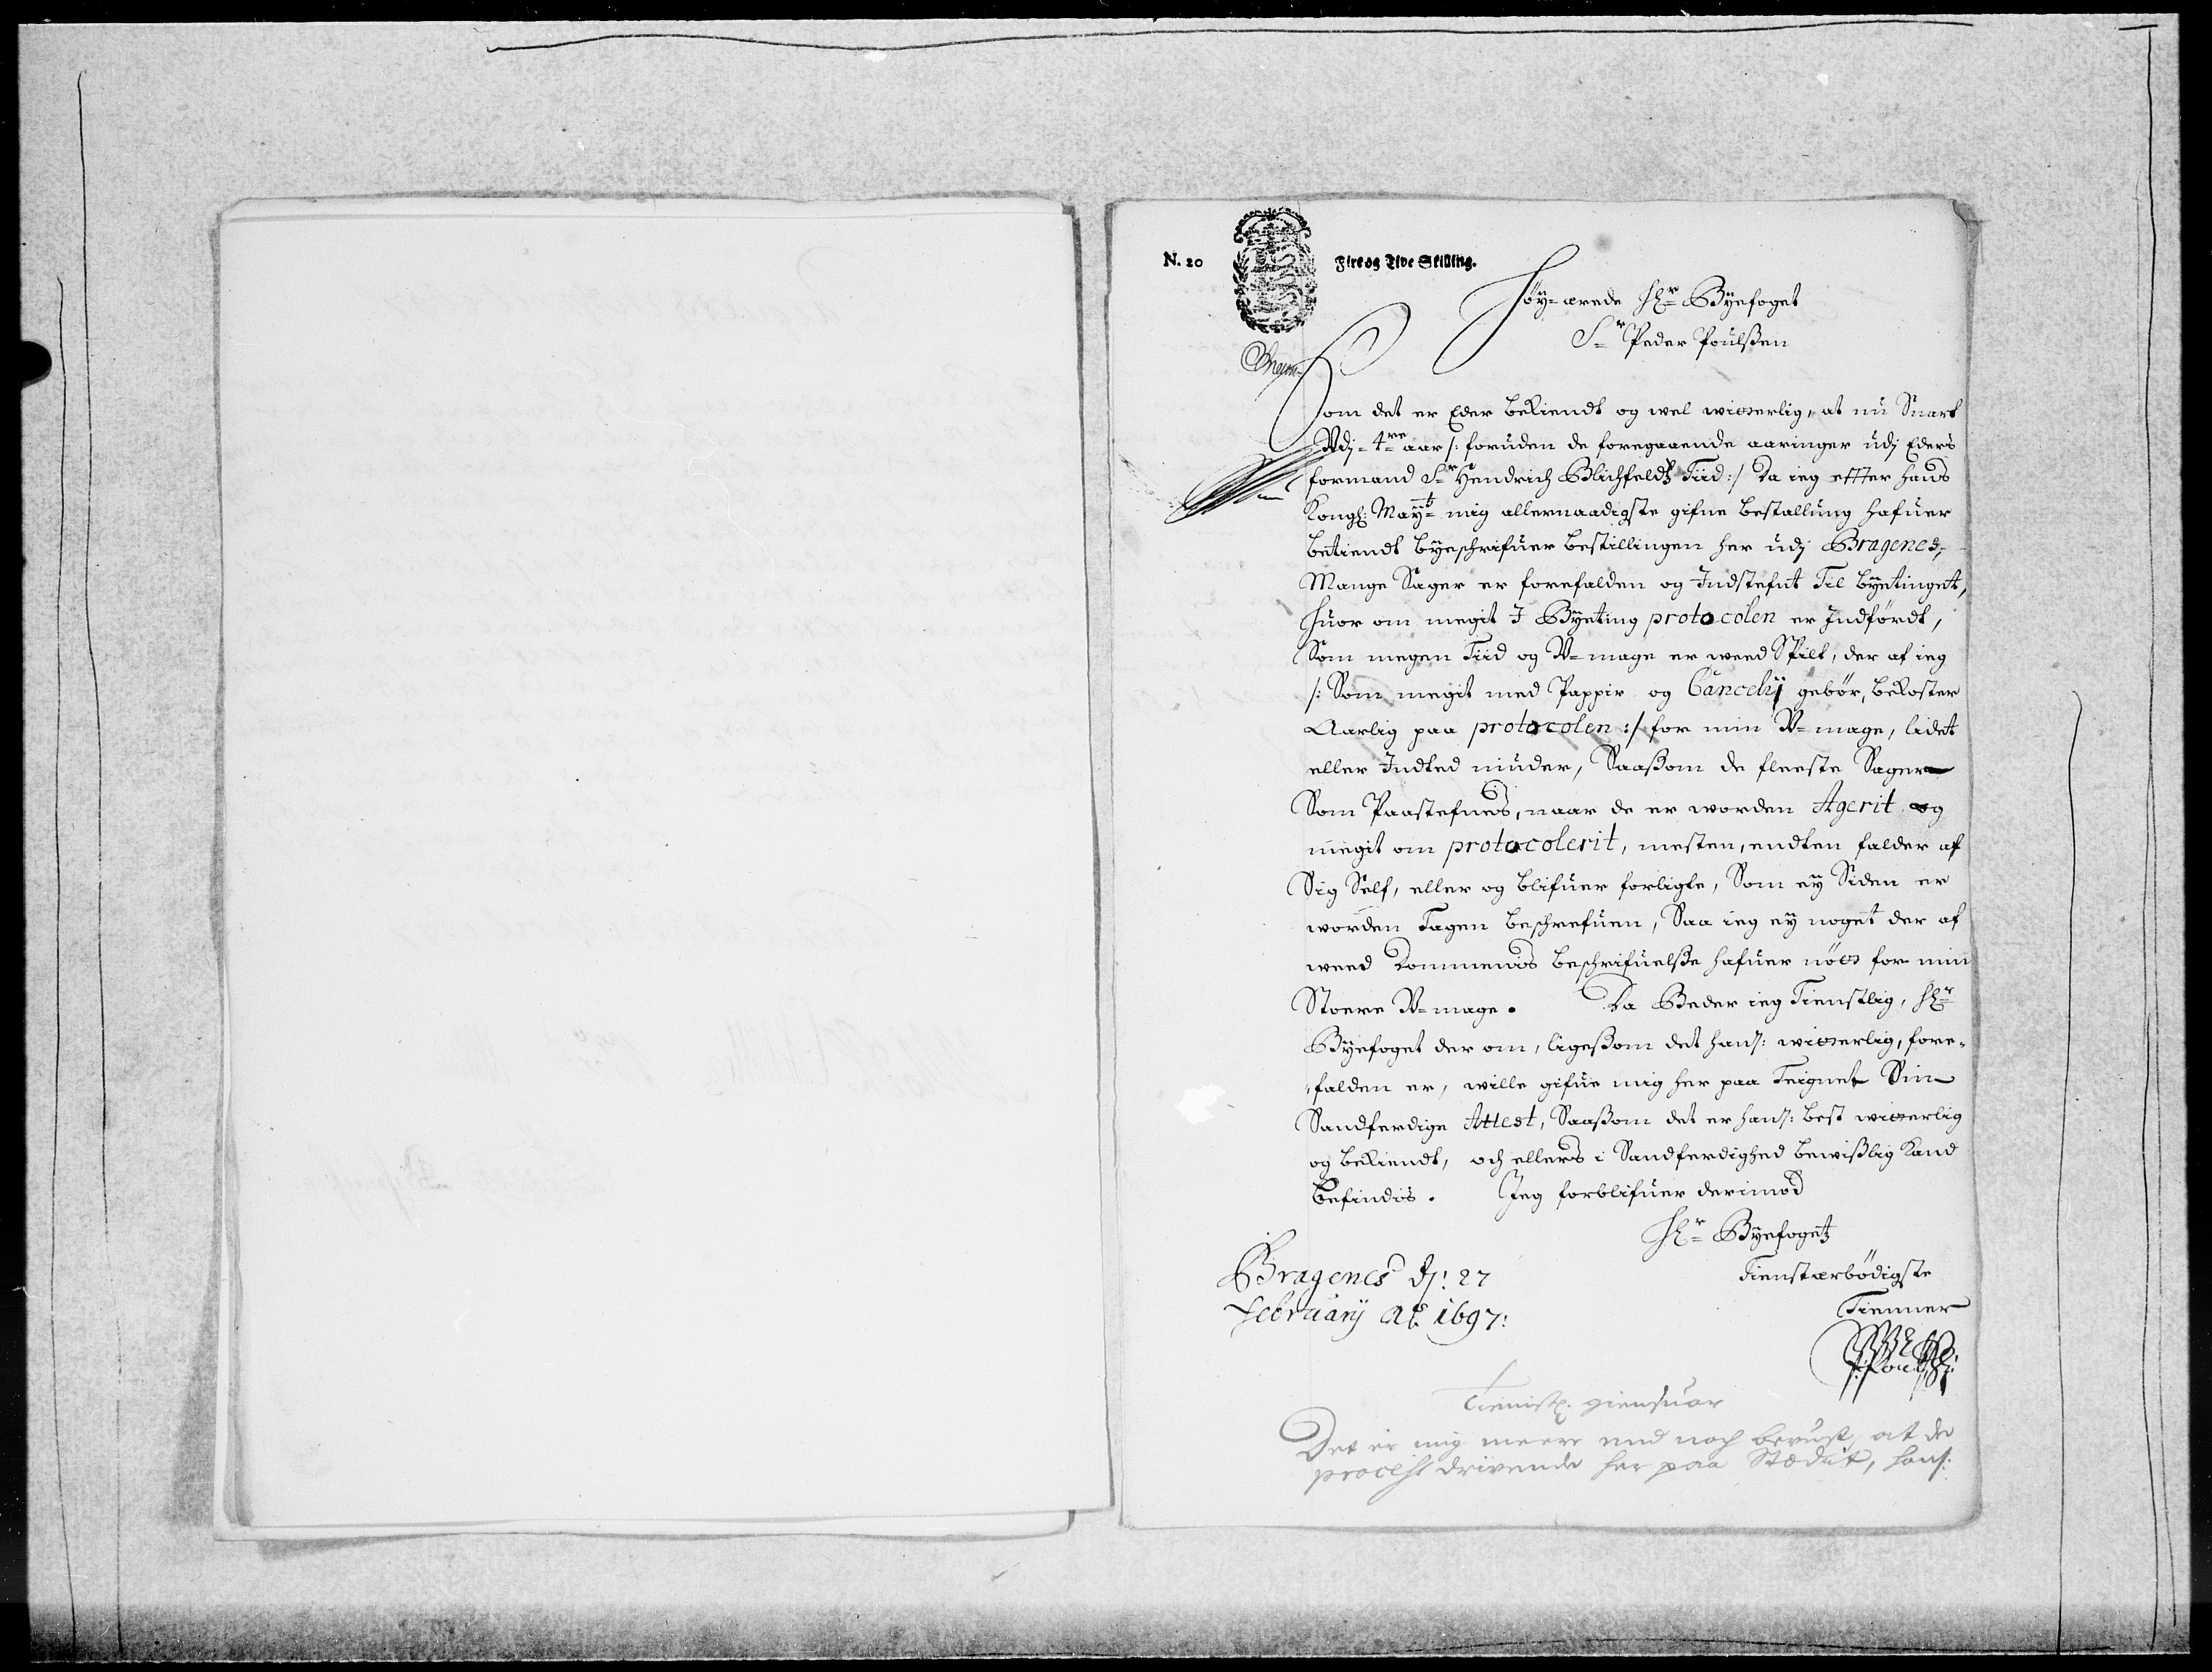 N. 20 Fire og Tive Skilling.
Höy-ærede Hr Byefoget
Sr Peder Poulsßen
Som det er Eder bekiendt og wel witterlig, at nu Snart
Udj 4re aar /: foruden de foregaaende aaringer udj Eders
formand Sr Hendrich Blichfeldtz Tiid :/ Da ieg effter hans
Kongl: Maytt mig allernaadigste gifne bestallung hafuer
betiendt byeschrifuer bestillingen her udj Bragenes,
Mange Sager er forefalden og Indstefnt Til byetinget,
huor om megit I Byeting protocolen er Indfördt,
Som megen Tiid og U-mage er weed Spilt, der af ieg
/: Som megit med Pappir og Cancelij gebör, bekoster
Aarlig paa protocolen :/ for min U-mage, lidet
eller Indted niuder, Saaßom de fleeste Sager
Som Paastefnes, naar de er worden Agerit og
megit om protocolerit, mesten, endten falder af
Sig Self, eller og blifuer forligte, Som ey Siden er
worden Tagen beschrefuen, Saa ieg ey noget der af
weed kommendis beschrifuelße hafuer nöt for min
Stoere U-mage. Da Beder ieg Tienstlig, Hr
Byefoget der om, ligeßom det hans: witterlig, fore-
falden er, wille gifue mig her paa Teignet Sin
Sandferdige Attest, Saaßom det er hans: best witterlig
og bekiendt, och ellers i Sandferdighed bewißlig kand
befindis. Jeg forblifuer derimod
Hr Byefogetz
Bragenes dj: 27
Tienstærbödigste
February Ao 1697:
Tienner
Tienistl: giensuar
Det er mig meere end noch bevust, at de
processer drivende her paa Stædet, hans: